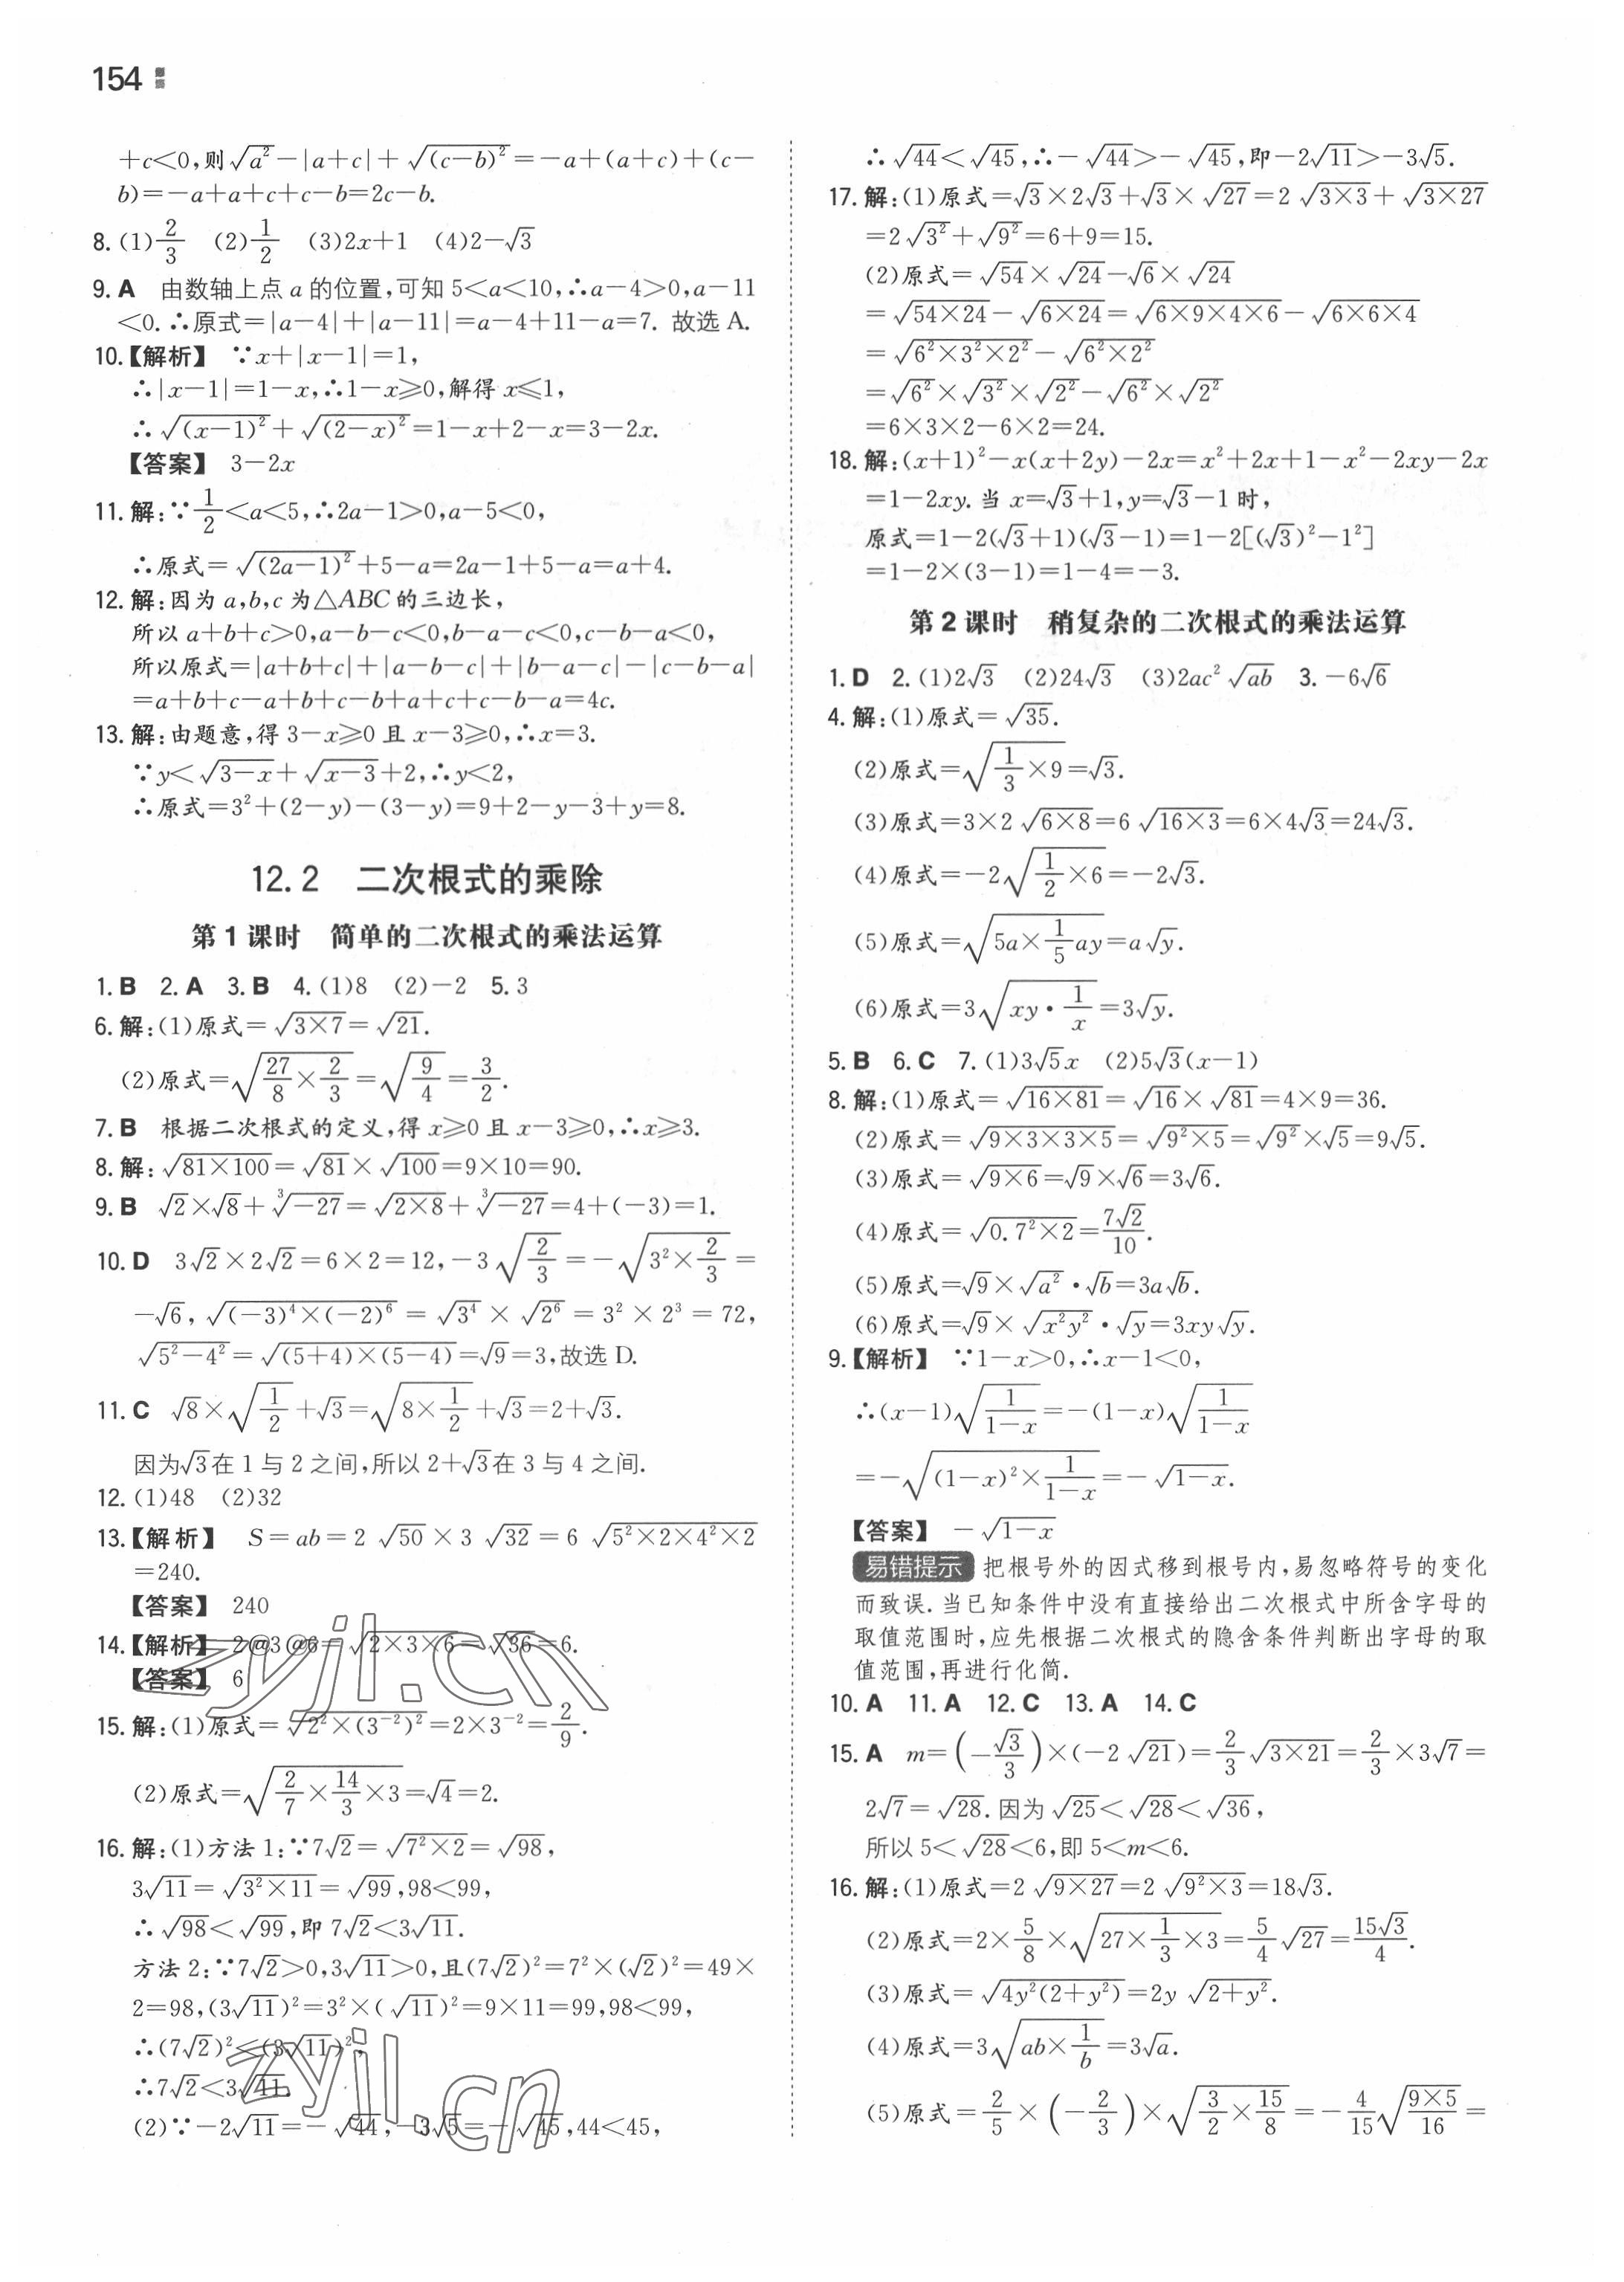 154
+c<0,则√(a²)−|a+c|+√((c−b)²)=−a+(a+c)+(c−
b)=−a+a+c+c−b=2c−b.
8. (1)2/3 (2)1/2 (3)2x+1 (4)2−√3
9. A 由数轴上点 a 的位置,可知 5<a<10,∴a−4>0,a−11
<0. ∴原式=|a−4|+|a−11|=a−4+11−a=7. 故选 A.
10.【解析】 ∵x+|x−1|=1,
∴|x−1|=1−x,∴1−x⩾0,解得 x⩽1,
∴√((x−1)²)+√((2−x)²)=1−x+2−x=3−2x.
【答案】 3−2x
11. 解:∵1/2<a<5,∴2a−1>0,a−5<0,
∴原式=√((2a−1)²)+5−a=2a−1+5−a=a+4.
12. 解:因为 a,b,c 为△ABC 的三边长,
所以 a+b+c>0,a−b−c<0,b−a−c<0,c−b−a<0,
所以原式=|a+b+c|+|a−b−c|+|b−a−c|−|c−b−a|
=a+b+c−a+b+c−b+a+c+c−b−a=4c.
13. 解:由题意,得 3−x⩾0 且 x−3⩾0,∴x=3.
∵y<√(3−x)+√(x−3)+2,∴y<2,
∴原式=3²+(2−y)−(3−y)=9+2−y−3+y=8.
12. 2 二次根式的乘除
第 1 课时 简单的二次根式的乘法运算
1. B 2. A 3. B 4. (1)8 (2)−2 5. 3
6. 解:(1)原式=√(3×7)=√21.
(2)原式=√(27/8×2/3)=√(9/4)=3/2.
7. B 根据二次根式的定义,得 x⩾0 且 x−3⩾0,∴x⩾3.
8. 解:√(81×100)=√81×√100=9×10=90.
9. B √2×√8+∛(−27)=√(2×8)+∛(−27)=4+(−3)=1.
10. D 3√2×2√2=6×2=12,−3√(2/3)=−√(3²×2/3)=
−√6,√((−3)⁴×(−2)⁶)=√(3⁴)×√(2⁶)=3²×2³=72,
√(5²−4²)=√((5+4)×(5−4))=√9=3,故选 D.
11. C √8×√(1/2)+√3=√(8×1/2)+√3=2+√3.
因为√3在 1 与 2 之间,所以 2+√3在 3 与 4 之间.
12. (1)48 (2)32
13.【解析】 S=ab=2√50×3√32=6√(5²×2×4²×2)
=240.
【答案】 240
14.【解析】 2@3@6=√(2×3×6)=√36=6.
【答案】 6
15. 解:(1)原式=√(2²×(3⁻²)²)=2×3⁻²=2/9.
(2)原式=√(2/7×14/3×3)=√4=2.
16. 解:(1)方法 1:∵7√2=√(7²×2)=√98,
3√11=√(3²×11)=√99,98<99,
∴√98<√99,即 7√2<3√11.
方法 2:∵7√2>0,3√11>0,且(7√2)²=7²×(√2)²=49×
2=98,(3√11)²=3²×(√11)²=9×11=99,98<99,
∴(7√2)²<(3√11)²,
∴7√2<3√11.
(2)∵−2√11=−√44,−3√5=−√45,44<45,
∴√44<√45,∴−√44>−√45,即−2√11>−3√5.
17. 解:(1)原式=√3×2√3+√3×√27=2√(3×3)+√(3×27)
=2√(3²)+√(9²)=6+9=15.
(2)原式=√54×√24−√6×√24
=√(54×24)−√(6×24)=√(6×9×4×6)−√(6×6×4)
=√(6²×3²×2²)−√(6²×2²)
=√(6²)×√(3²)×√(2²)−√(6²)×√(2²)
=6×3×2−6×2=24.
18. 解:(x+1)²−x(x+2y)−2x=x²+2x+1−x²−2xy−2x
=1−2xy. 当 x=√3+1,y=√3−1 时,
原式=1−2(√3+1)(√3−1)=1−2[(√3)²−1²]
=1−2×(3−1)=1−4=−3.
第 2 课时 稍复杂的二次根式的乘法运算
1. D 2. (1)2√3 (2)24√3 (3)2ac²√(ab) 3. −6√6
4. 解:(1)原式=√35.
(2)原式=√(1/3×9)=√3.
(3)原式=3×2√(6×8)=6√(16×3)=6×4√3=24√3.
(4)原式=−2√(1/2×6)=−2√3.
(5)原式=√(5a×1/5ay)=a√y.
(6)原式=3√(xy·1/x)=3√y.
5. B 6. C 7. (1)3√5x (2)5√3(x−1)
8. 解:(1)原式=√(16×81)=√16×√81=4×9=36.
(2)原式=√(9×3×3×5)=√(9²×5)=√(9²)×√5=9√5.
(3)原式=√(9×6)=√9×√6=3√6.
(4)原式=√(0.7²×2)=7√2/10.
(5)原式=√9×√(a²)·√b=3a√b.
(6)原式=√9×√(x²y²)·√y=3xy√y.
9.【解析】 ∵1−x>0,∴x−1<0,
∴(x−1)√(1/(1−x))=−(1−x)√(1/(1−x))
=−√((1−x)²×1/(1−x))=−√(1−x).
【答案】 −√(1−x)
易错提示 把根号外的因式移到根号内,易忽略符号的变化
而致误. 当已知条件中没有直接给出二次根式中所含字母的
取值范围时,应先根据二次根式的隐含条件判断出字母的取
值范围,再进行化简.
10. A 11. A 12. C 13. A 14. C
15. A m=(−√3/3)×(−2√21)=2/3√(3×21)=2/3×3√7=
2√7=√28. 因为√25<√28<√36,
所以 5<√28<6,即 5<m<6.
16. 解:(1)原式=2√(9×27)=2√(9²×3)=18√3.
(2)原式=2×5/8×√(27×1/3×3)=5/4√27=15√3/4.
(3)原式=√(4y²(2+y²))=2y√(2+y²).
(4)原式=3√(ab×1/b)=3√a.
(5)原式=2/5×(−2/3)×√(3/2×15/8)=−4/15√(9×5/16)=
zyjl.cn
zyjl.cn